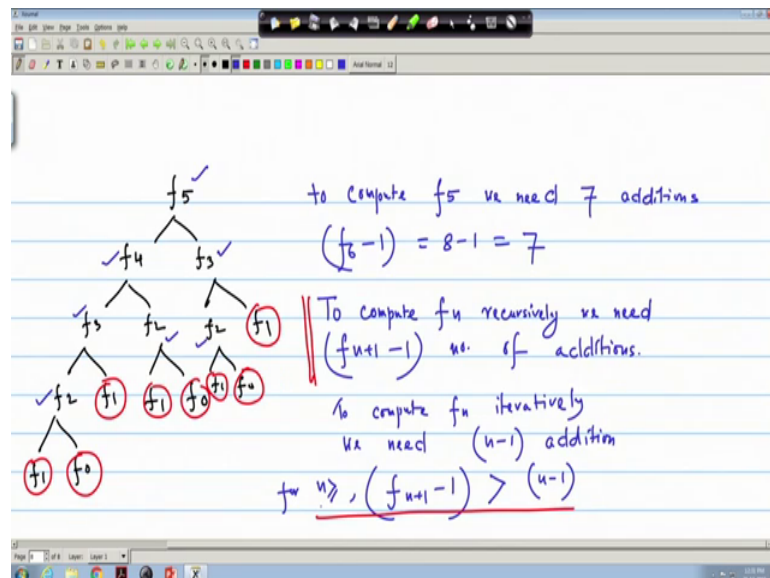 Journal
File Edit View Page Tools Options Help
Arial Normal 12
f5
f4 f3
f3 f2 f2 f1
f2 f1 f1 f0 f1 f0
f1 f0
to compute f5 we need 7 additions
(f6-1) = 8-1 = 7
To compute fn recursively we need
(fn+1 -1) no. of additions.
To compute fn iteratively
we need (n-1) addition
for n≥, (fn+1 -1) > (n-1)
Page of 8 Layer: Layer 1